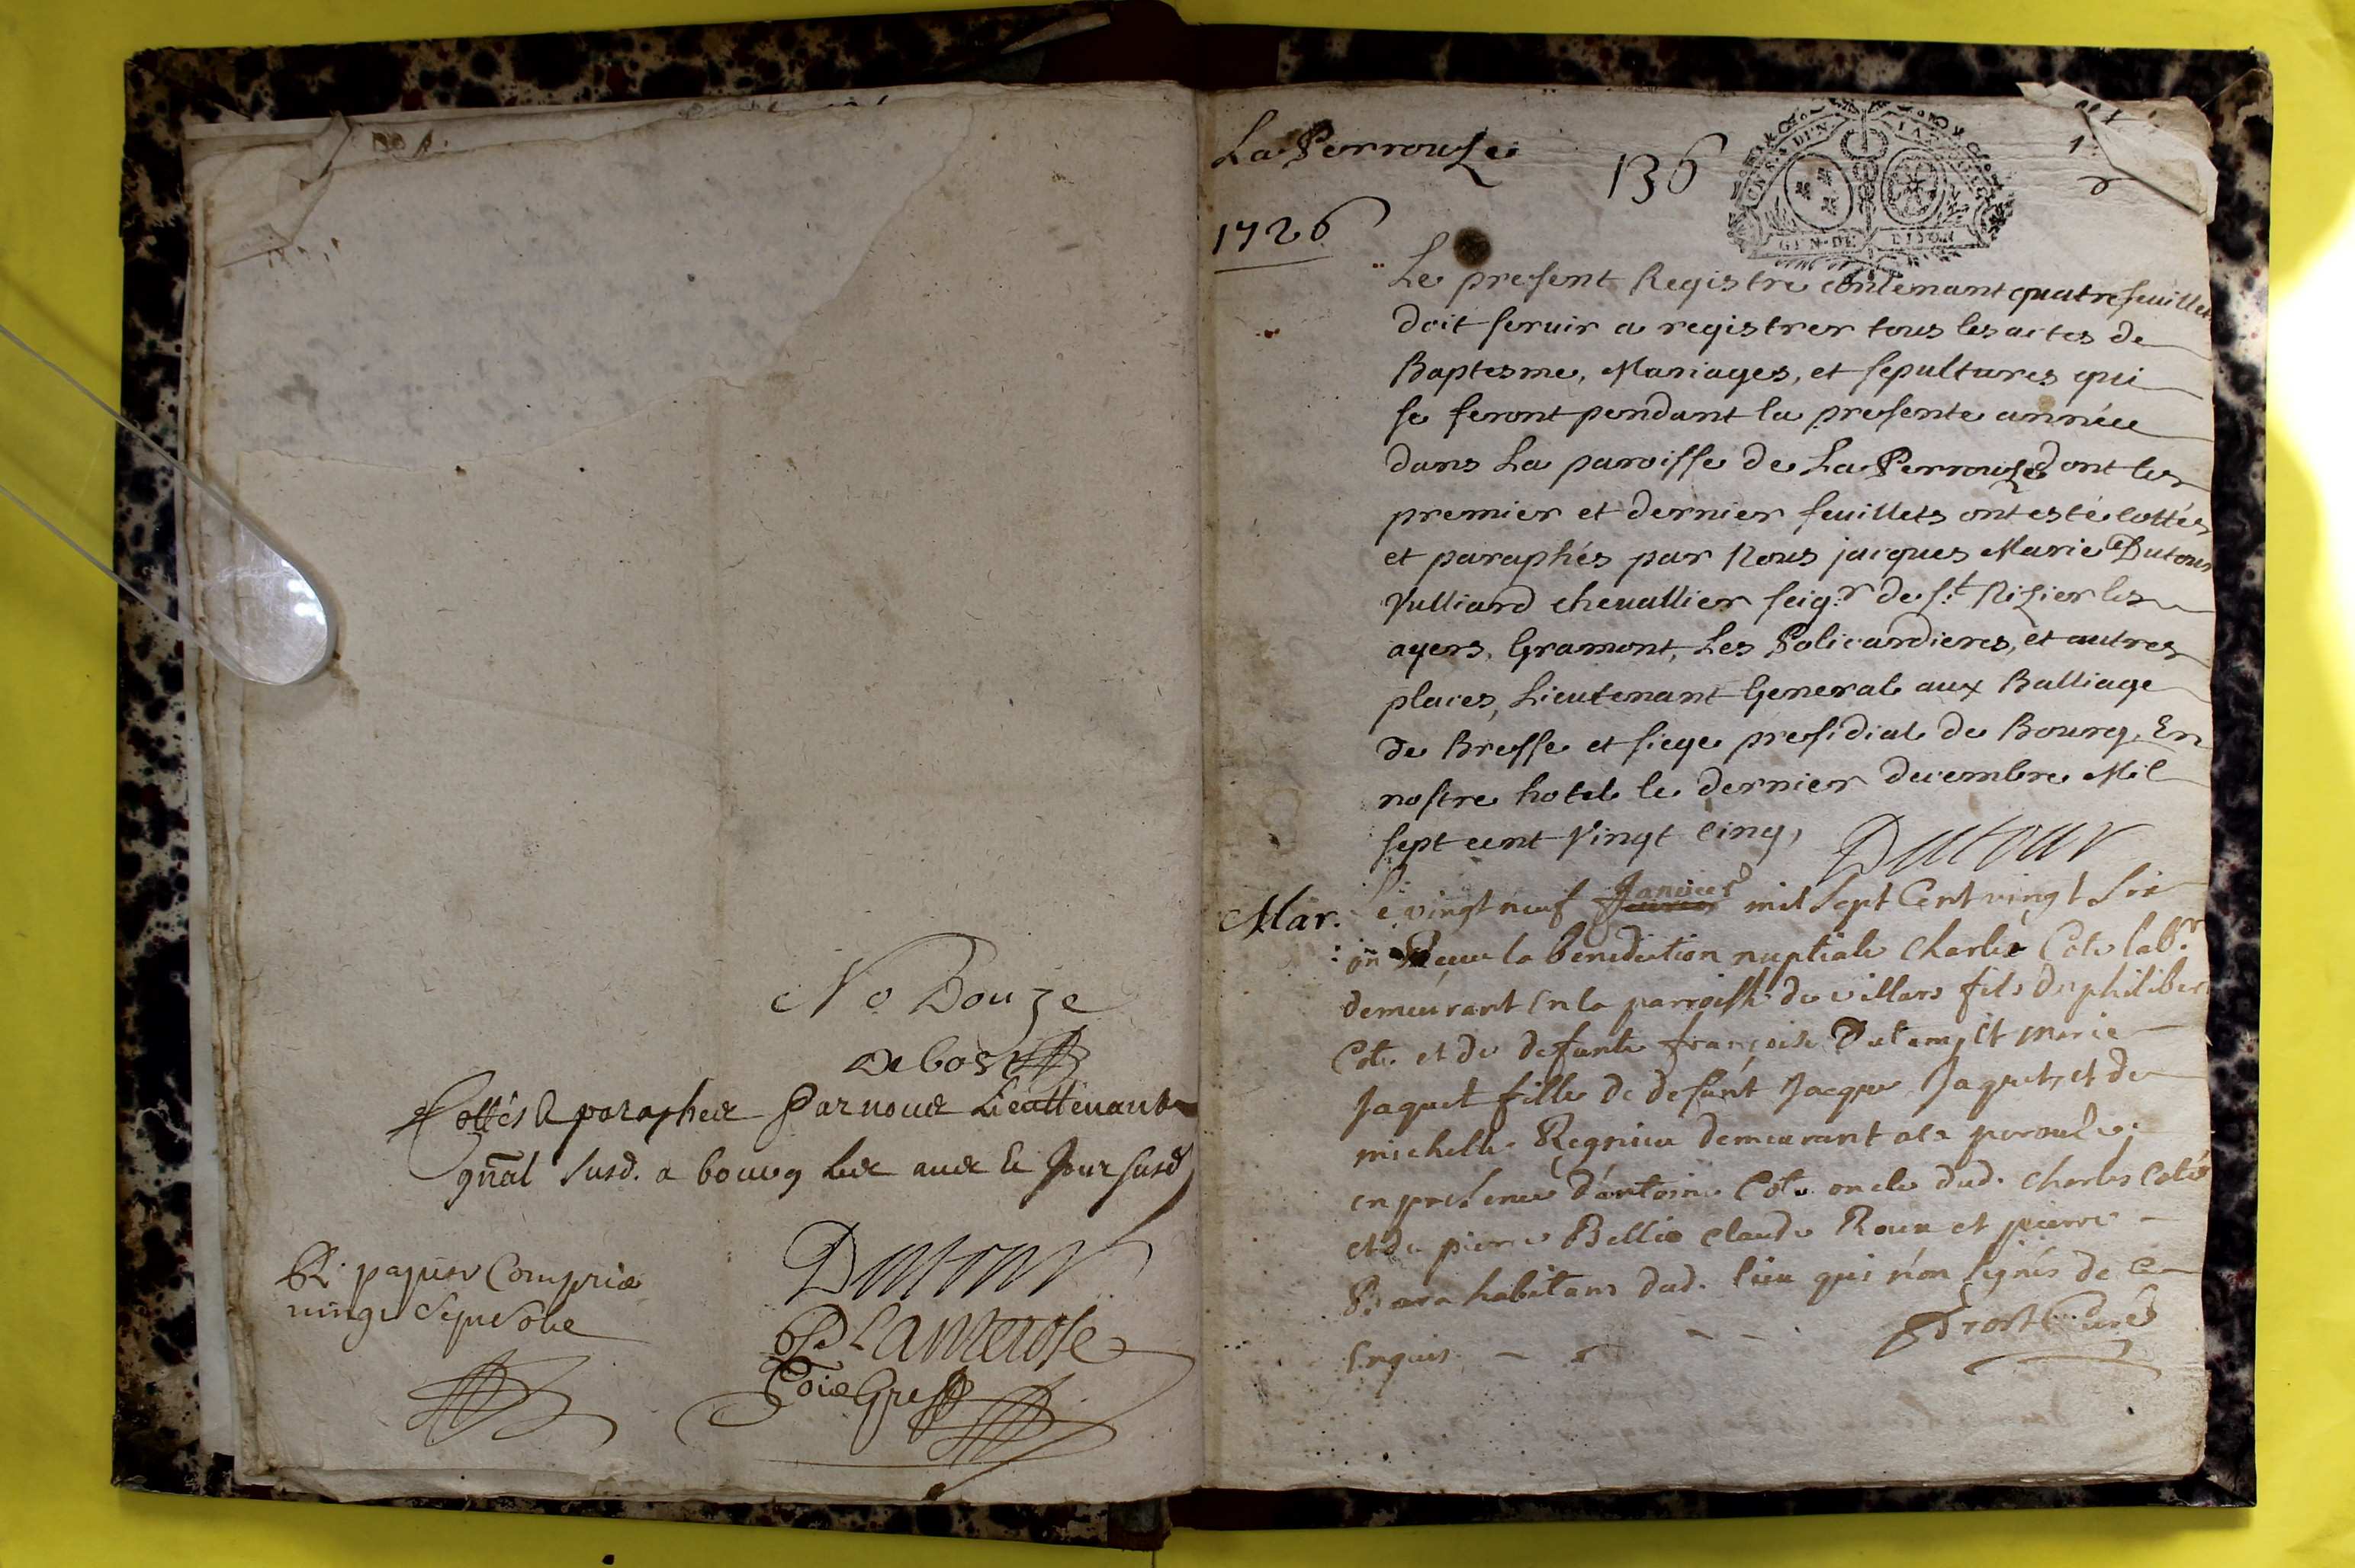 No Douze
Cottés & paraphez Par nous Lieuttenant
gñal susd. a bourg les an & le Jour susd
Dutour
R. papier Compris
vingt Sept Sols
La Perrouze
136
1726
GEN·DE LIYON
Le present Registre contenant quatre feuillet
doit servir a registrer tous les actes de
Baptesme, Mariages, et sepultures qui
se feront pendant la presente année
dans La paroisse de La Perrouze dont les
premier et dernier feuillets ont esté cottés
et paraphés par Nous jacques Marie Dutour
Vulliard chevallier seigr. de st. Nizier les
ayers, Gramont, Les Policardieres, et autres
places, Lieutenant General aux Balliage
de Bresse et siege presidial de Bourg, En
nostre hotel le dernier decembre Mil
sept cent Vingt cinq,
Dutour
Mar. Le vingt neuf Janvier mil Sept Cent vingt Six
on Receu la benediction nuptiale Charles Cote labr.
demeurant En la parroisse de villars fils de philiber
Cote et de defunte françoise et Marie
Jaquet fille de defunt Jacque Jaquet, et de
michelle Regnieu demeurant a la perouse,
en presence d'antoine Cote oncle dud. Charles Coté
et de pierre Bellie claude Roux et pierre
habitans dud. lieu qui n'on signés de ce
Enquis.
Prost Curé